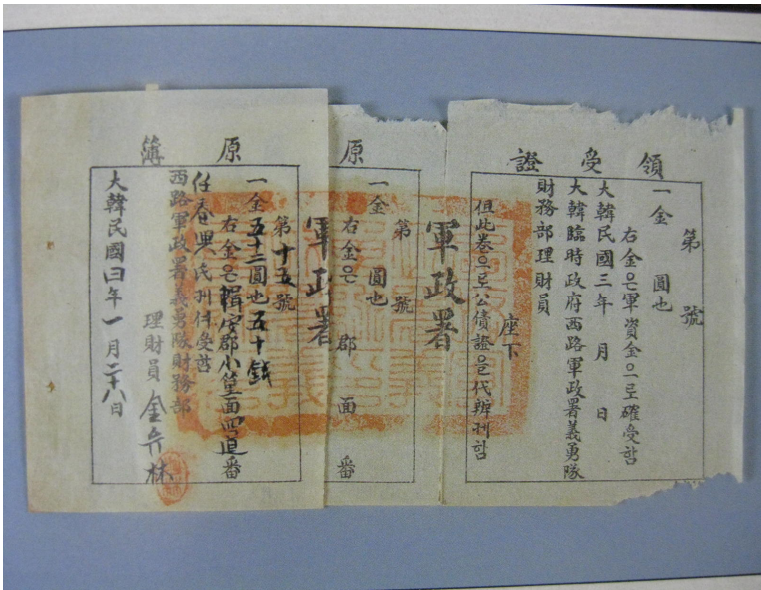 領受證
第 號
一金 圓也
右金은軍資金으로確受함
大韓民國三年 月 日
大韓臨時政府西路軍政署義勇隊
財務部理財員
座下
但此卷으로公債證을代辨케함
軍政署
原
第 號
一金 圓也
右金은 郡 面 番
軍政署
原簿
第十五號
一金五十二圓也五十錢
右金은輯安郡小篁面 番
任 氏 受함
西路軍政署義勇隊財務部
理財員 金 林
大韓民國四年一月二十八日